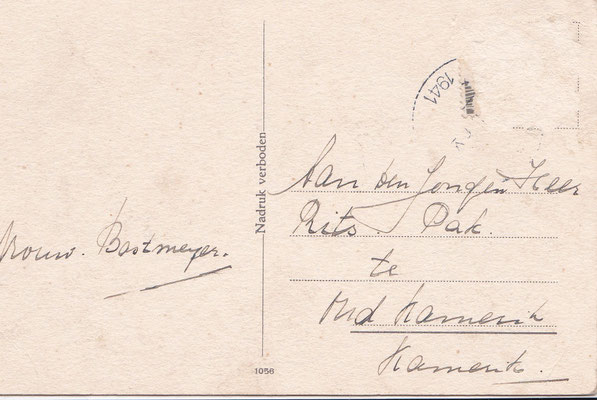 1941
Aan den Jongen Heer
Rits Pak.
te
Oud Kamerik
Kamerik.
Mouw. Bastmeyer.
Nadruk verboden
1056